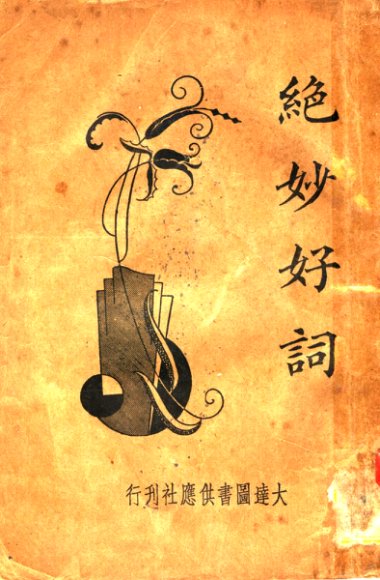 絕妙好詞
大達圖書供應社刊行